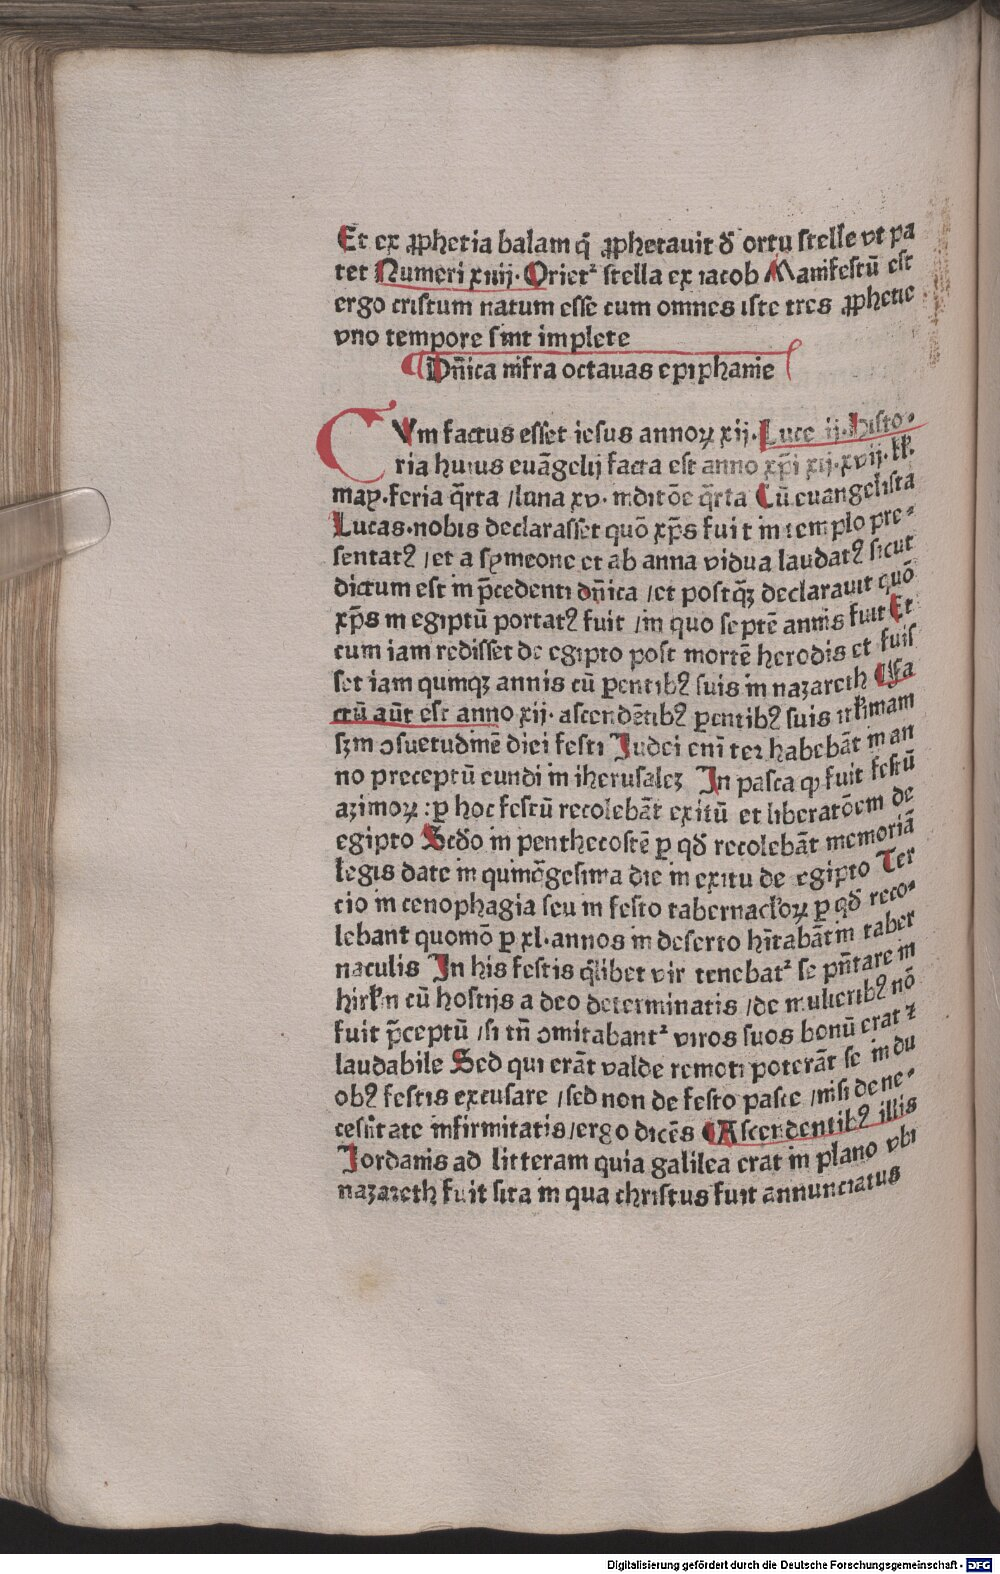 Et ex ꝓphetia balam q̄ ꝓphetauit đ ortu stelle vt pa
tet Numeri xxiij. Orietᷣ stella ex iacob Manifestū est
ergo cristum natum esse cum omnes iste tres ꝓphetie
vno tempore sint implete
Dn̄ica infra octauas epiphanie
CVm factus esset iesus annoꝝ xij. Luce ij. Histo-
ria huius euāgelij facta est anno xp̄i xij. xvij. kł.
may. feria q̄rta / luna xv. inditōe q̄rta Cū euangelista
Lucas. nobis declarasset quō xp̄s fuit in templo pre-
sentatꝰ / et a symeone et ab anna vidua laudatꝰ sicut
dictum est in p̄cedenti dn̄ica / et postqꝫ declarauit quō
xp̄s in egiptū portatꝰ fuit / in quo septē annis fuit Et
cum iam redisset de egipto post mortē herodis et fuis
set iam quinqꝫ annis cū ꝑentibꝰ suis in nazareth ¶Fa
ctū aūt est anno xij. ascendētibꝰ ꝑentibꝰ suis irłimam
scꝫm ↄsuetudinē diei festi Iudei enī ter habebāt in an
no preceptū eundi in iherusaleꝫ In pasca ꝙ fuit festū
azimoꝝ : ꝑ hoc festū recolebāt exitū et liberatōem de
egipto Scđo in penthecostē ꝑ qđ recolebāt memoriā
legis date in quinq̄gesima die in exitu de egipto Ter
cio in cenophagia seu in festo tabernacłoꝝ ꝑ qđ reco-
lebant quomō ꝑ xl. annos in deserto hīrabāt in taber
naculis In his festis q̄libet vir tenebatᷣ se pn̄tare in
hirłm cū hostijs a deo determinatis / de mulieribꝰ nō
fuit p̄ceptū / si tn̄ ↄmitabantᷣ viros suos bonū erat ⁊
laudabile Sed qui erāt valde remoti poterāt se in du
obꝰ festis excusare / sed non de festo pasce / nisi de ne-
cessitate infirmitatis / ergo dicēs ¶Ascendentibꝰ illis
Iordanis ad litteram quia galilea erat in plano vbi
nazareth fuit sita in qua christus fuit annunciatus
Digitalisierung gefördert durch die Deutsche Forschungsgemeinschaft - DFG